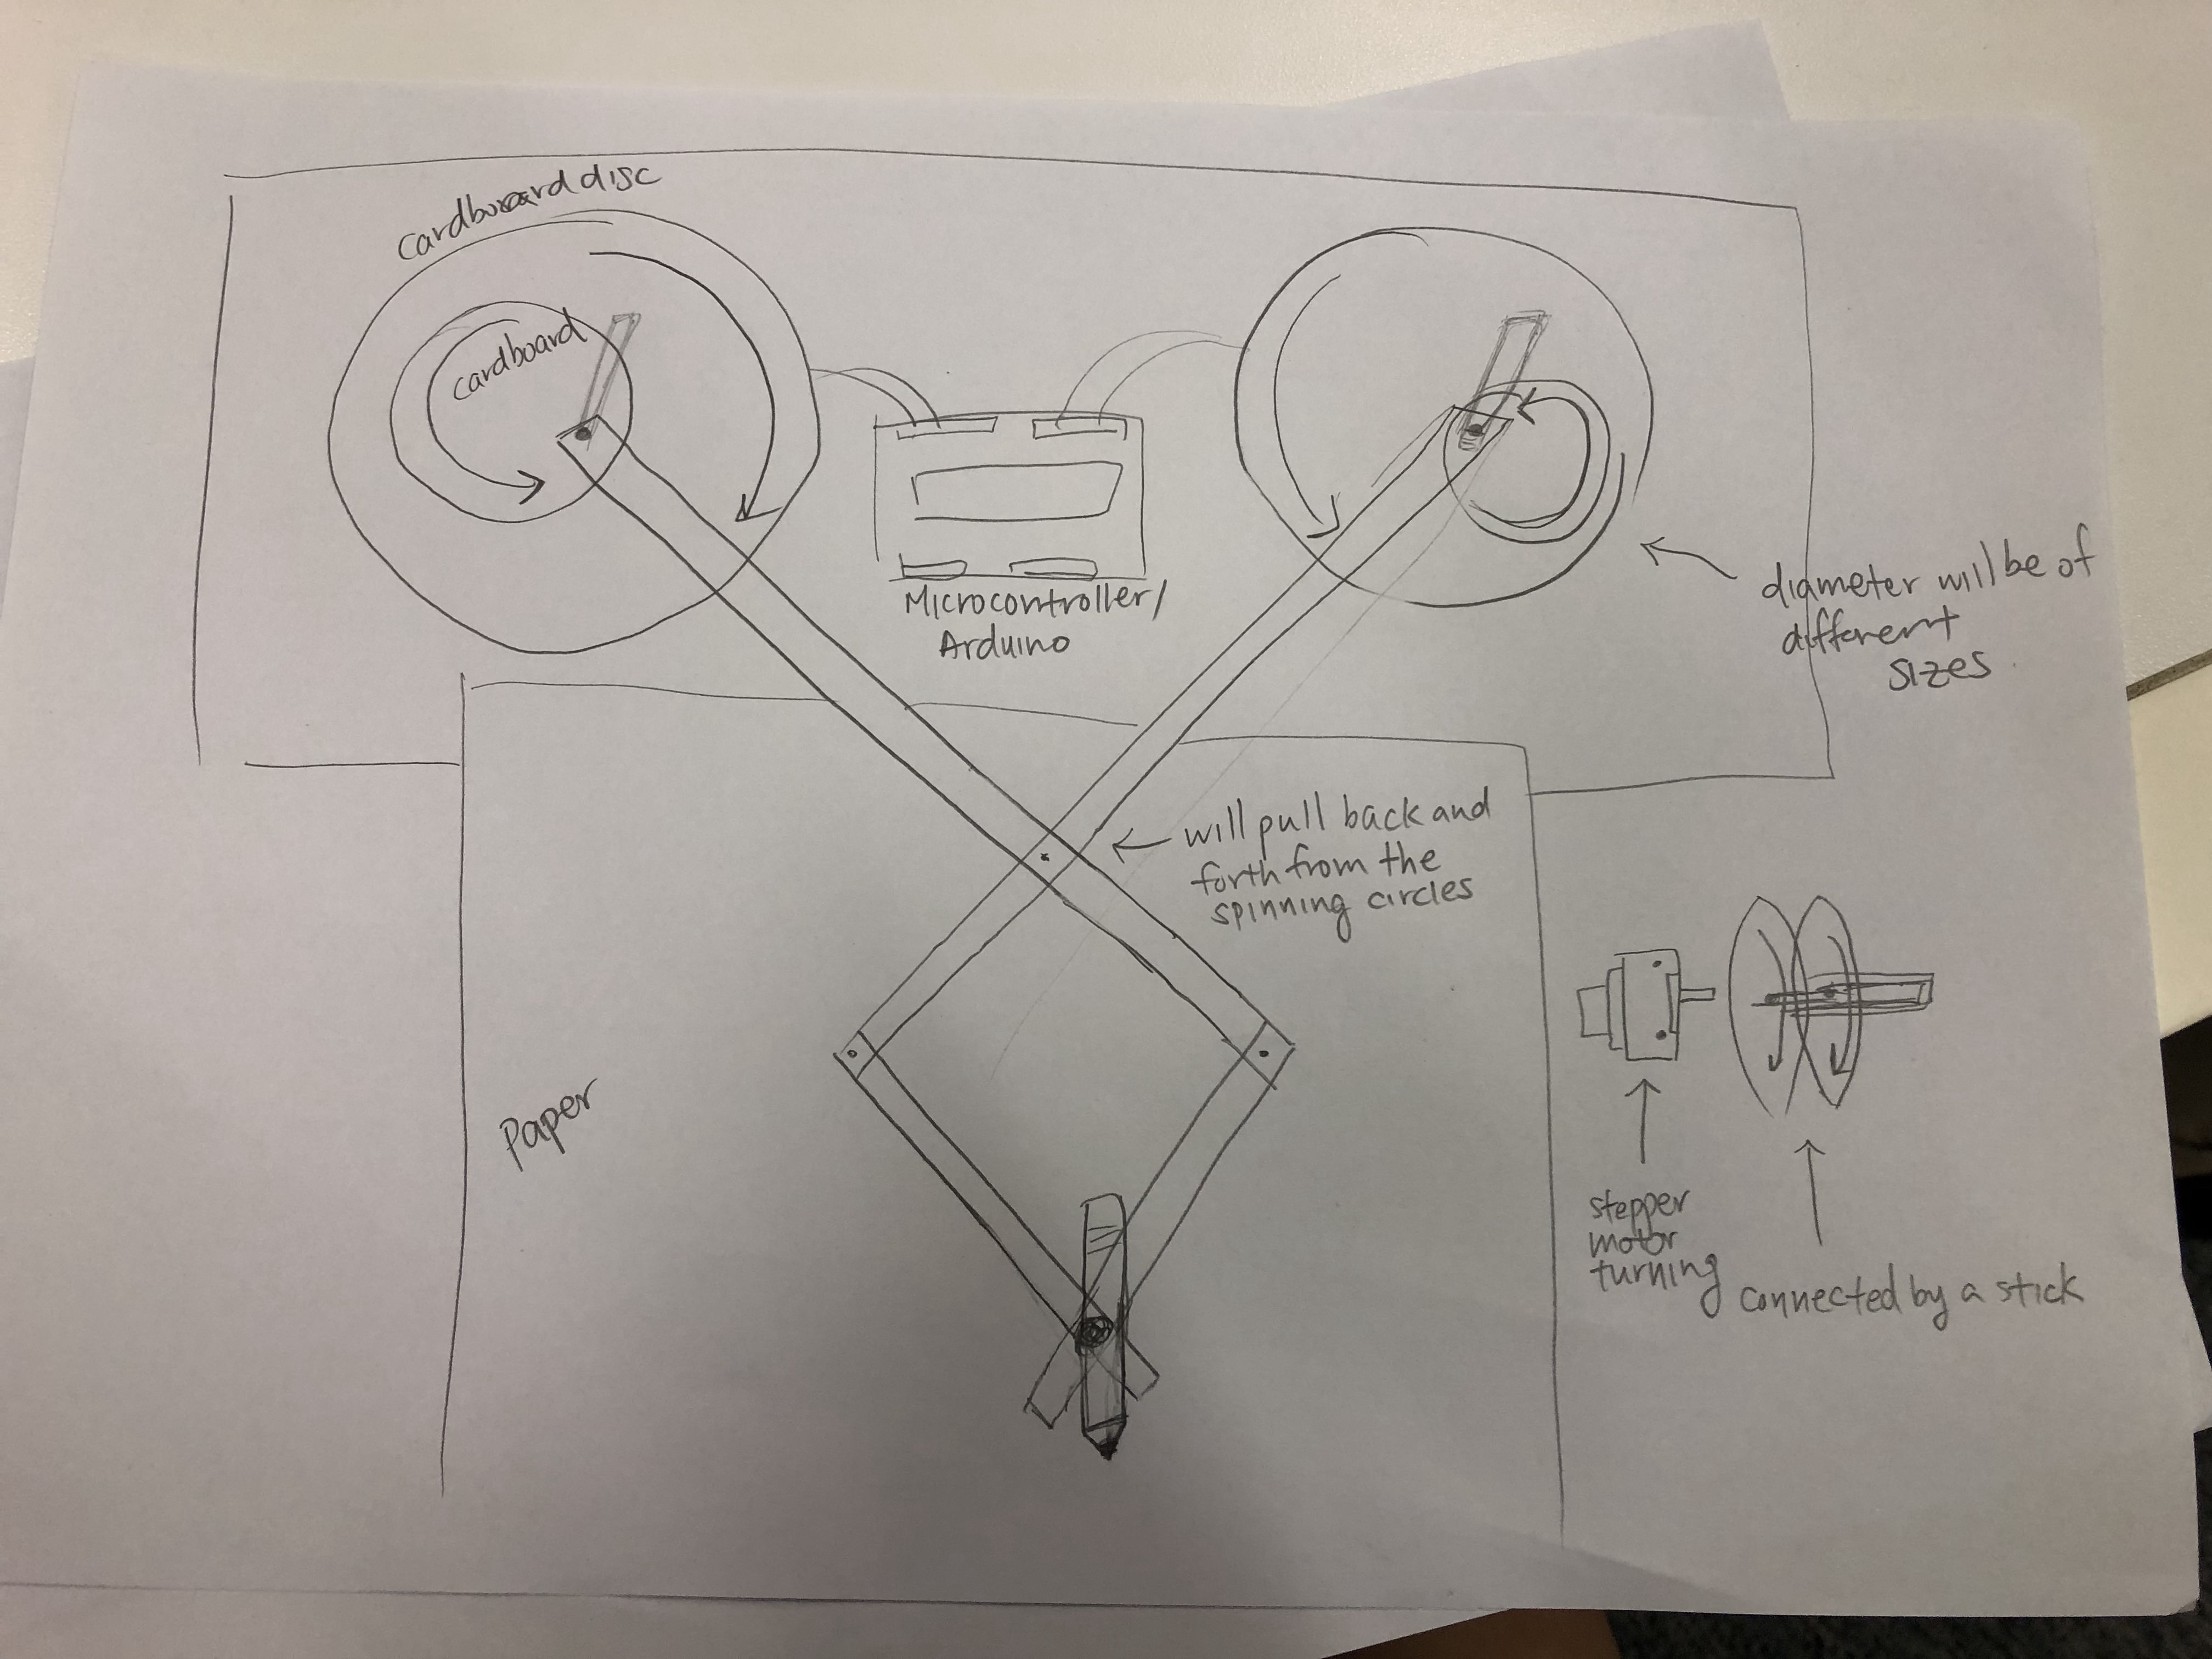 cardboard disc
cardboard
Microcontroller/
Arduino
diameter will be of
different
sizes
will pull back and
forth from the
spinning circles
Paper
stepper
motor
turning
connected by a stick